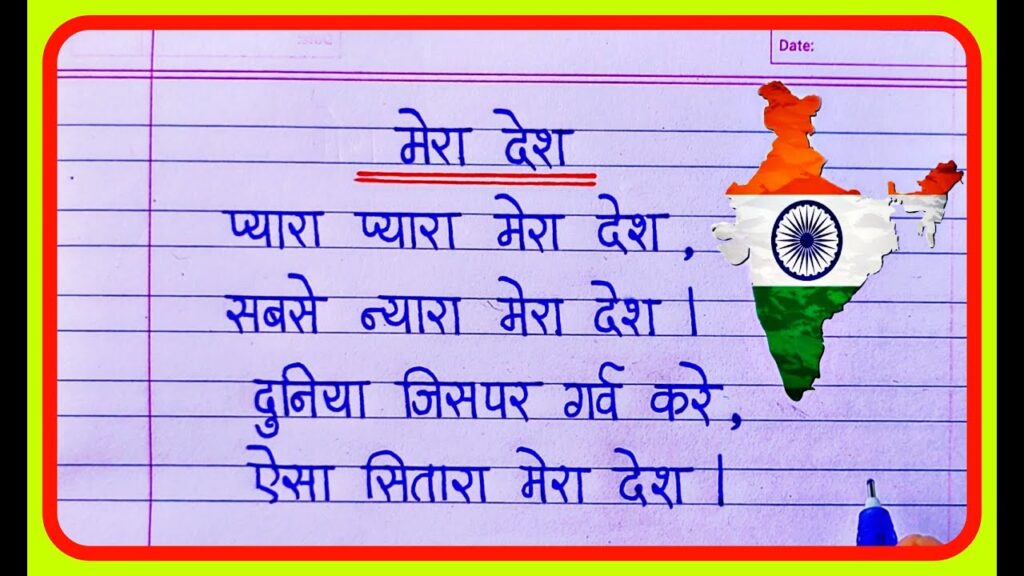 Date:
मेरा देश
प्यारा प्यारा मेरा देश ,
सबसे न्यारा मेरा देश ।
दुनिया जिसपर गर्व करे ,
ऐसा सितारा मेरा देश ।